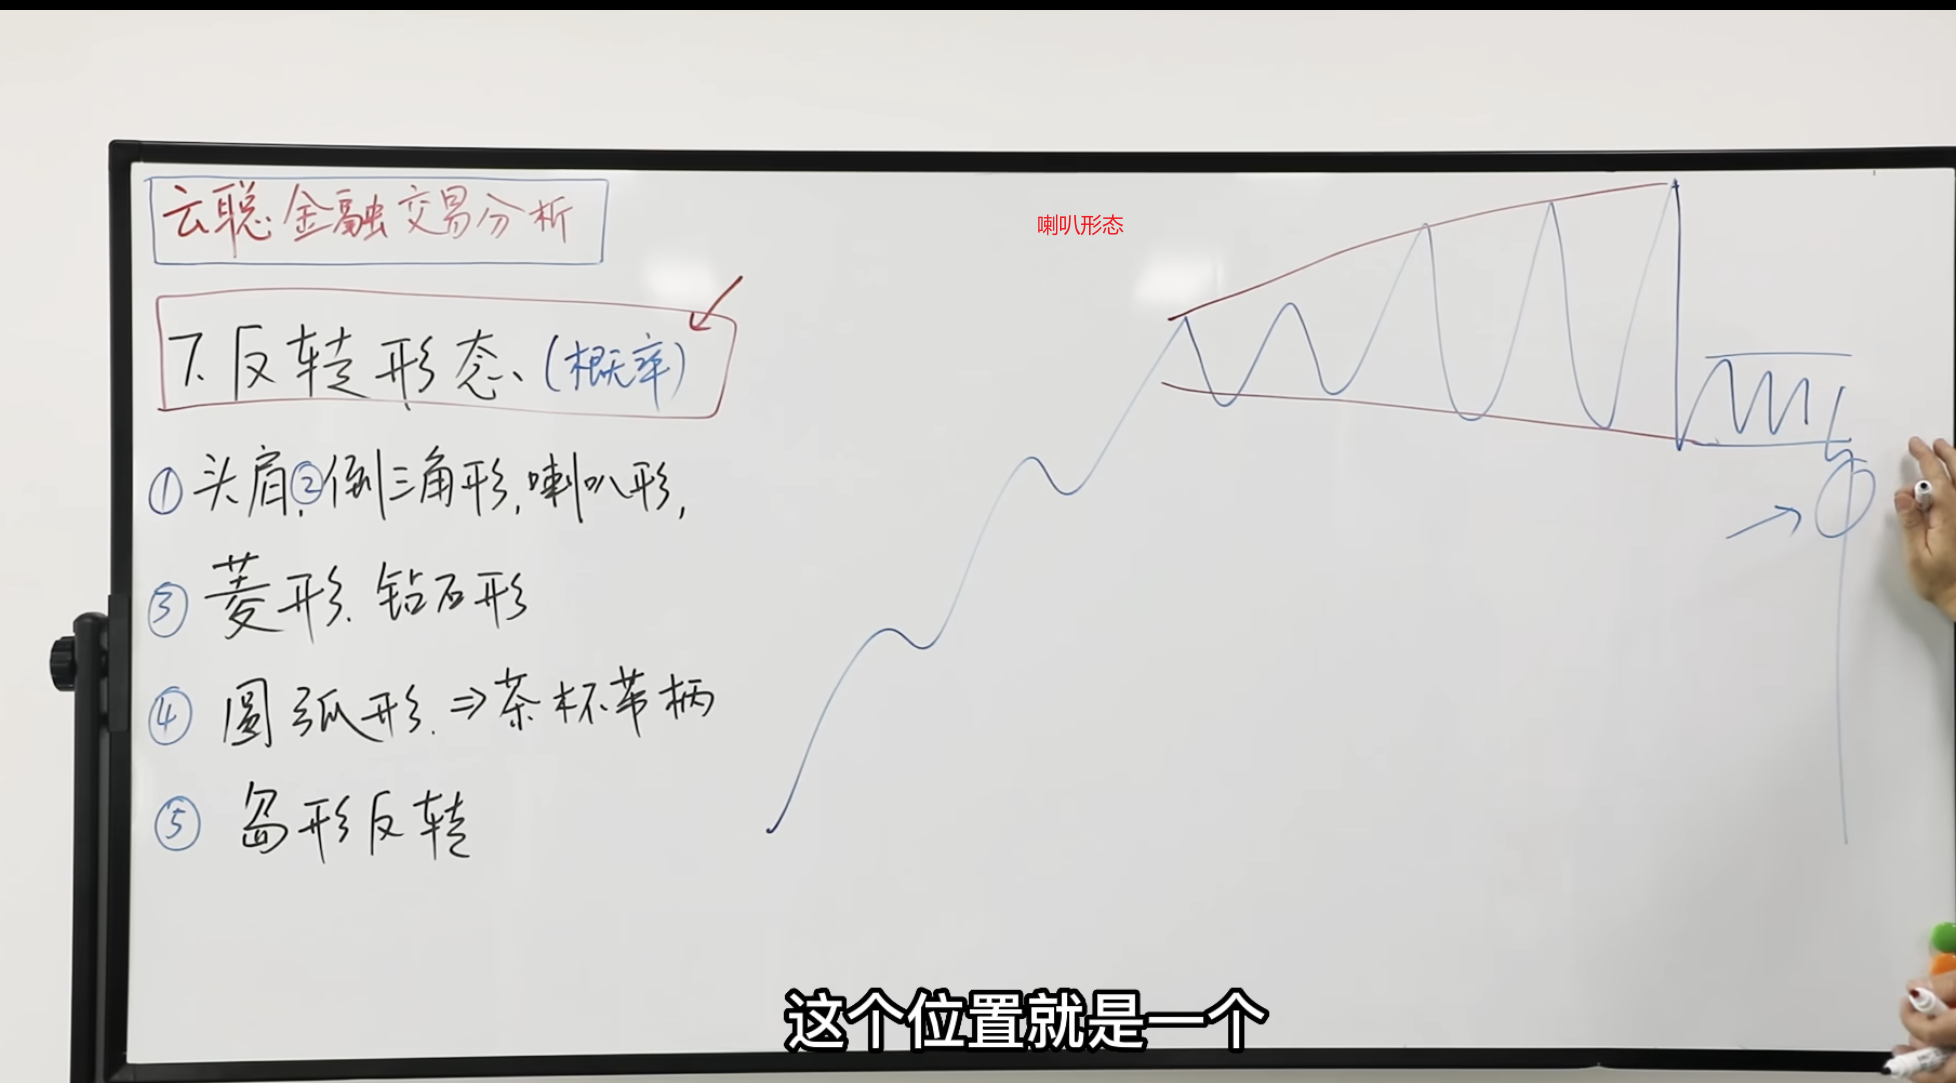 云聪金融交易分析
喇叭形态
7.反转形态、(概率)
①头肩,②倒三角形,喇叭形,
③菱形.钻石形
④圆弧形.⇒茶杯带柄
⑤岛形反转
这个位置就是一个